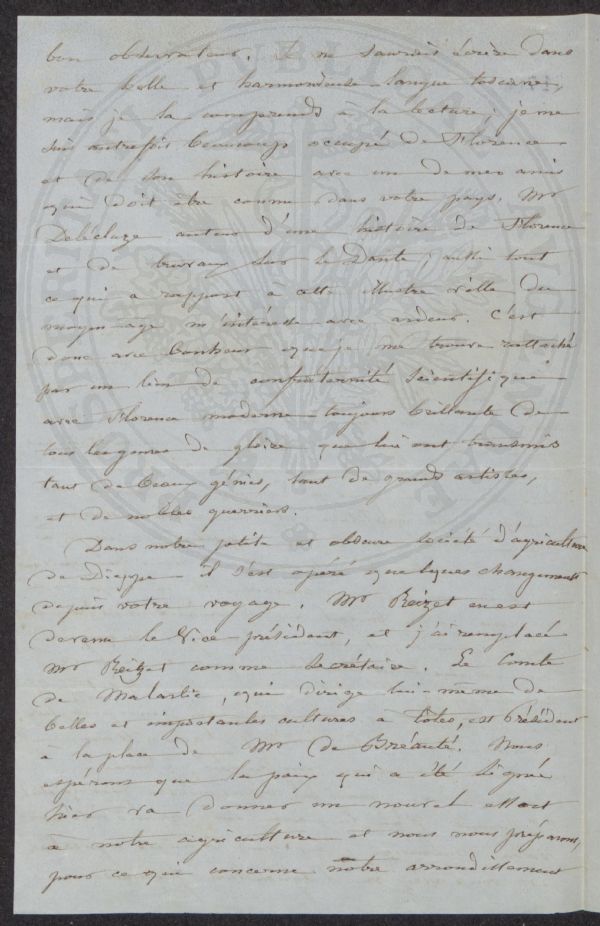 bon observateur. Je ne saurais écrire dans
votre belle et harmonieuse langue toscane,
mais je la comprends à la lecture; je me
suis autrefois beaucoup occupé de Florence
et de son histoire avec un de mes amis
qui doit être connu dans votre pays, Mr
Delécluze auteur d'une histoire de Florence
et de travaux sur le Dante; aussi tout
ce qui a rapport à cette illustre ville du
moyen age m'intéresse avec ardeur. C'est
donc avec bonheur que je me trouve rattaché
par un lien de confraternité scientifique
avec Florence moderne toujours brillante de
tous les genres de gloire que lui ont transmis
tant de beaux génies, tant de grands artistes,
et de nobles guerriers.
Dans notre petite et obscure société d'agriculture
de Dieppe il s'est opéré quelques changements
depuis votre voyage. Mr Reizet en est
devenu le Vice président, et j'ai remplacé
Mr Reizet comme secrétaire. Le Comte
de Malartic, qui dirige lui-même de
belles et importantes cultures à Totes, est Président
à la place de Mr de Bréauté. Nous
espérons que la paix qui a été signée
hier va donner un nouvel essort
à notre agriculture et nous nous préparons,
pour ce qui concerne notre arrondissement